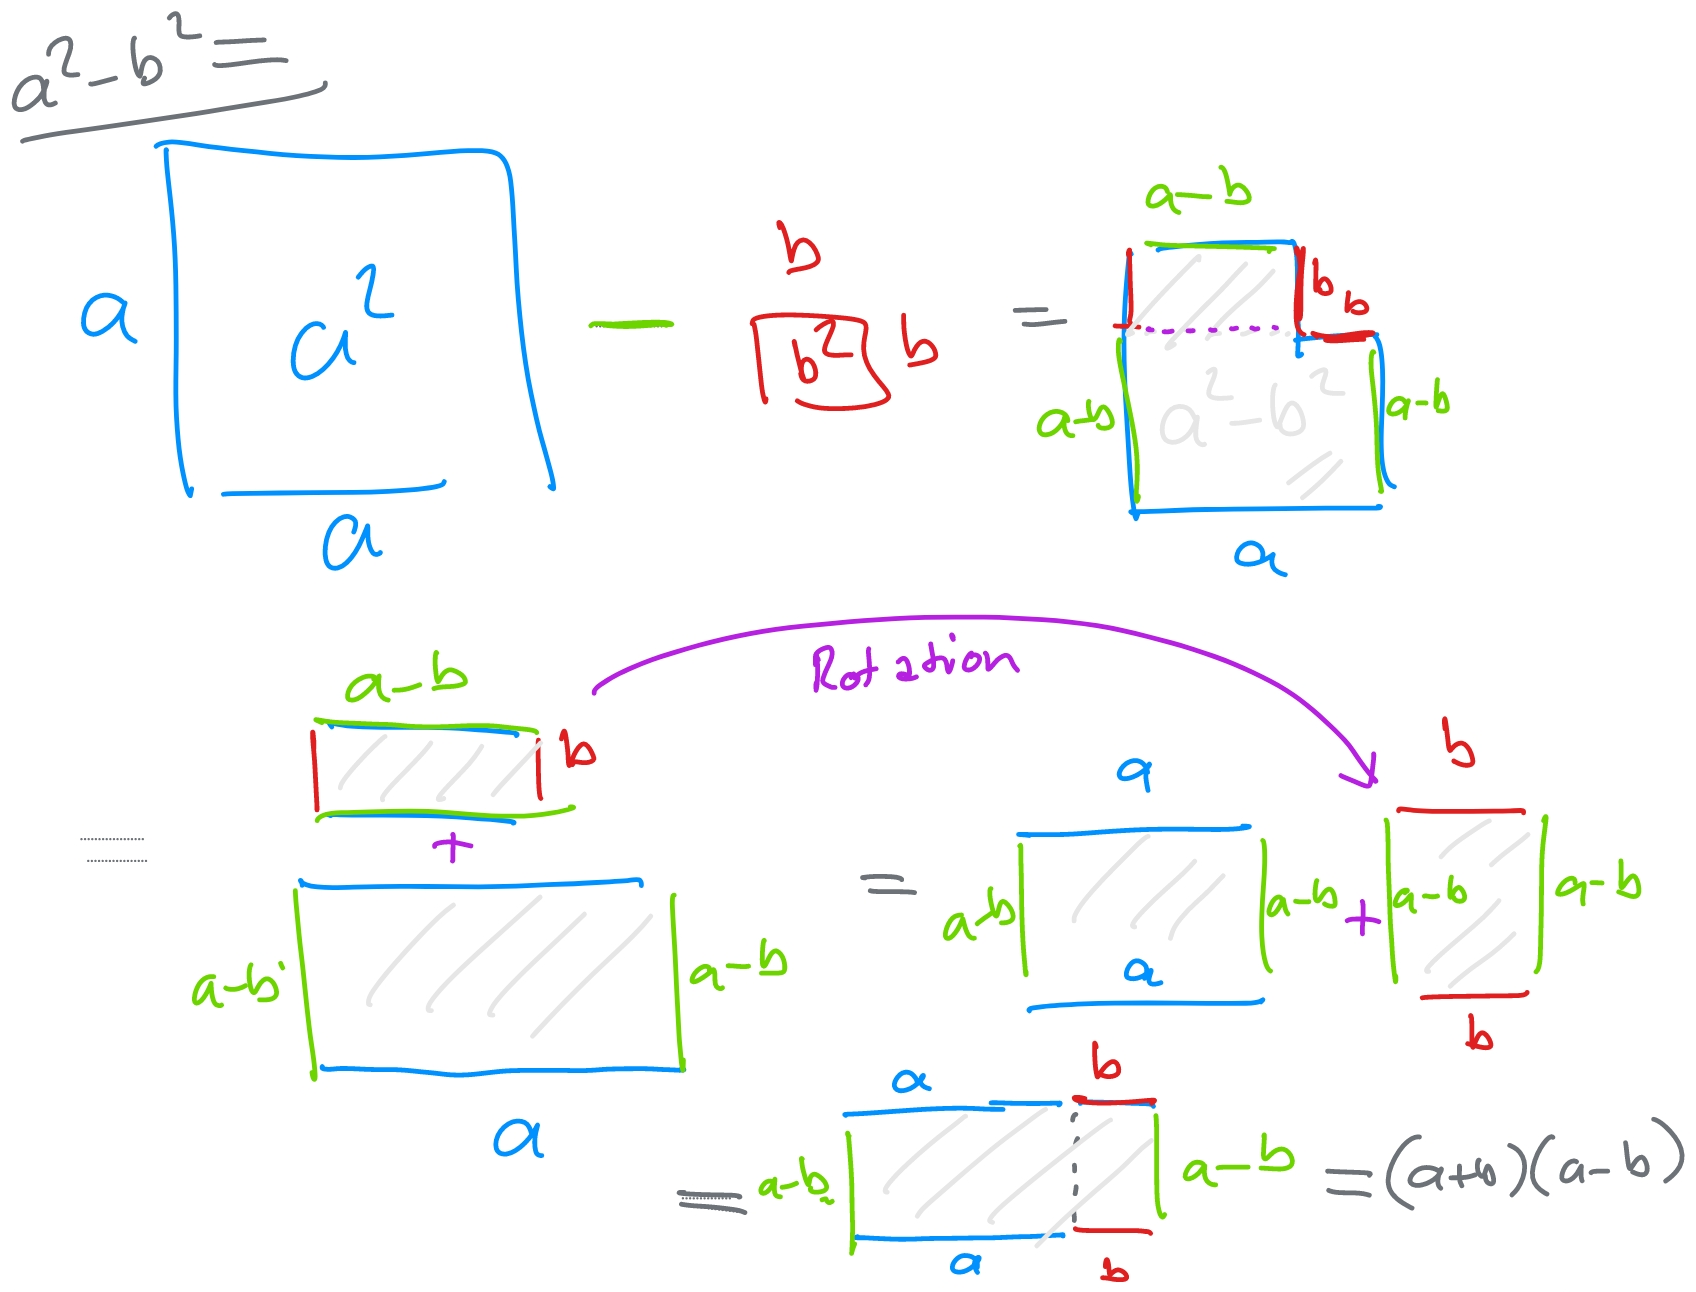 a²-b²=
a a² a
- b b² b
= a-b b b a-b a²-b² a-b a
a-b b
Rotation
=
+
a-b a-b a
= a a-b a-b a + b a-b a-b b
= a b a-b a-b a b =(a+b)(a-b)